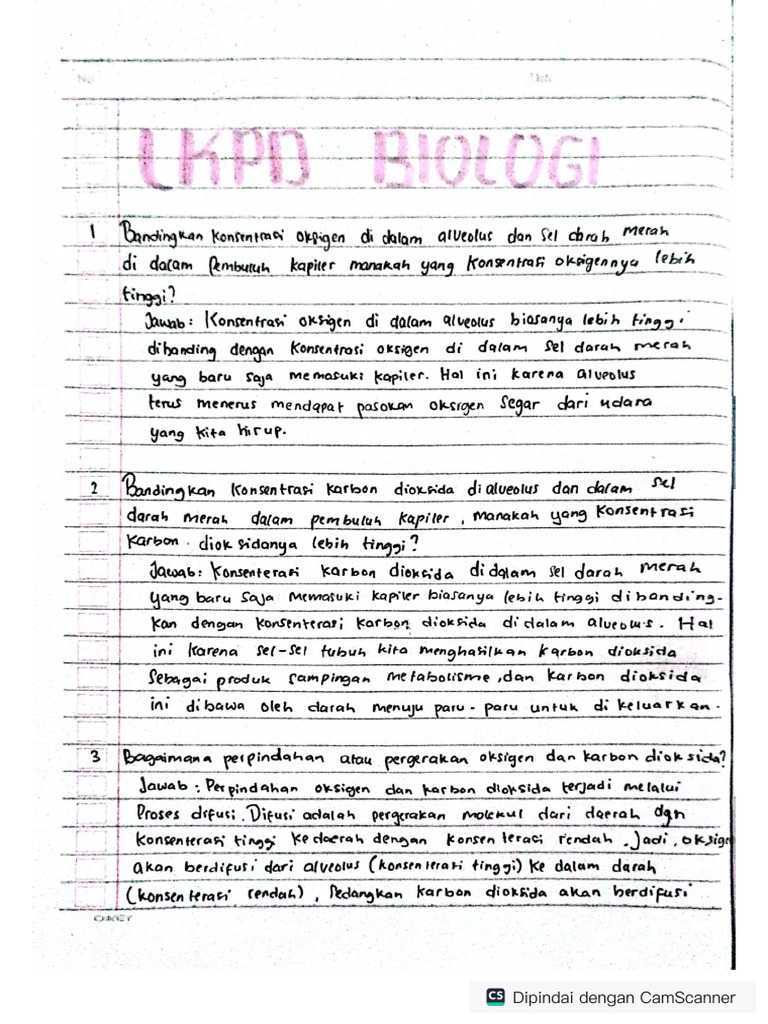 No.
Date
LKPD BIOLOGI
1 Bandingkan Konsentrasi oksigen di dalam alveolus dan sel darah merah
di dalam Pembuluh kapiler manakah yang Konsentrasi oksigennya lebih
tinggi?
Jawab: Konsentrasi oksigen di dalam alveolus biasanya lebih tinggi
dibanding dengan Konsentrasi oksigen di dalam sel darah merah
yang baru saja memasuki kapiler. Hal ini karena alveolus
terus menerus mendapat pasokan oksigen segar dari udara
yang kita hirup.
2 Bandingkan Konsentrasi karbon dioksida di alveolus dan dalam sel
darah merah dalam pembuluh kapiler, manakah yang Konsentrasi
Karbon dioksidanya lebih tinggi?
Jawab: Konsenterasi karbon dioksida didalam sel darah merah
yang baru saja memasuki kapiler biasanya lebih tinggi dibanding-
kan dengan Konsenterasi karbon dioksida didalam alveolus. Hal
ini karena sel-sel tubuh kita menghasilkan karbon dioksida
sebagai produk sampingan metabolisme, dan karbon dioksida
ini dibawa oleh darah menuju paru-paru untuk di keluarkan.
3 Bagaimana perpindahan atau pergerakan oksigen dan karbon dioksida?
Jawab: Perpindahan oksigen dan karbon dioksida terjadi melalui
Proses difusi. Difusi adalah pergerakan molekul dari daerah dgn
Konsenterasi tinggi Kedaerah dengan konsenterasi rendah. Jadi, oksige
akan berdifusi dari alveolus (konsenterasi tinggi) Ke dalam darah
(konsenterasi rendah), sedangkan Karbon dioksida akan berdifusi
CS Dipindai dengan CamScanner